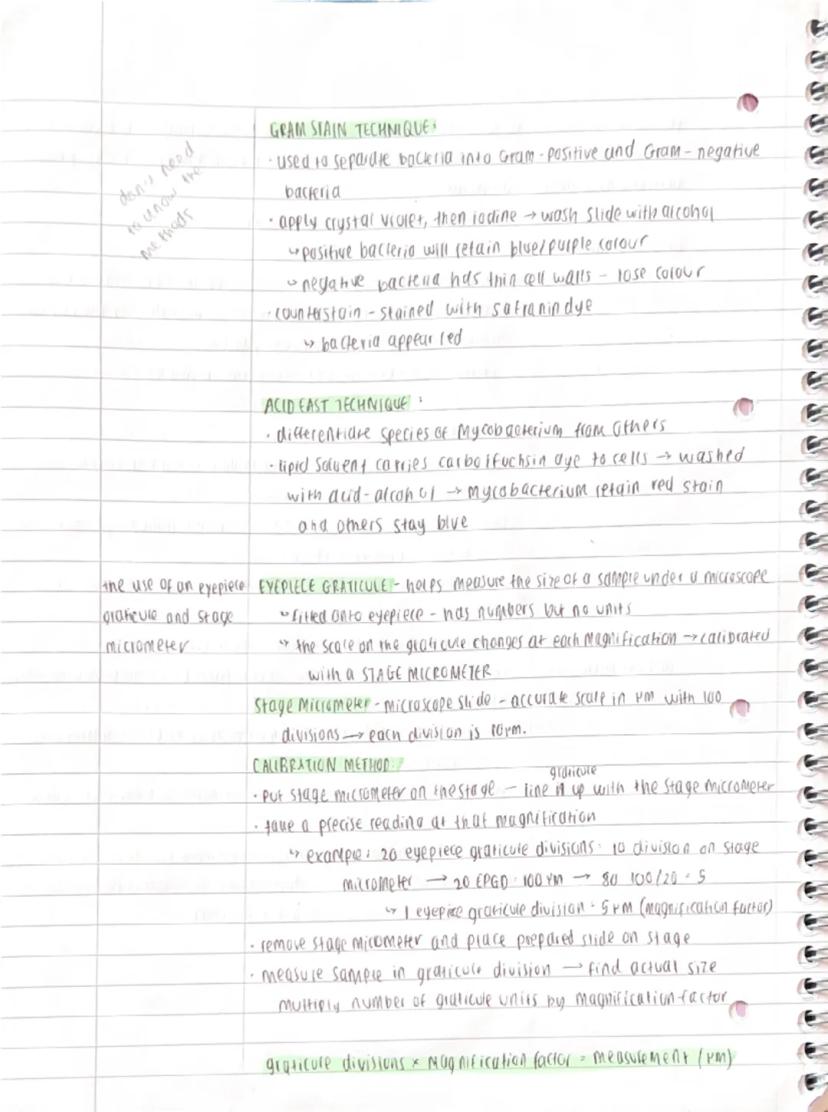 GRAM STAIN TECHNIQUE:
don't need
to know the
methods
· used to separate bacteria into Gram-positive and Gram-negative
bacteria
· apply crystal violet, then iodine → wash slide with alcohol
↳ positive bacteria will retain blue/purple colour
↳ negative bacteria has thin cell walls - lose colour
· counterstain - stained with safranin dye
↳ bacteria appear red
ACID FAST TECHNIQUE:
· differentiate species of Mycobacterium from others
· lipid solvent carries carbolfuchsin dye to cells → washed
with acid-alcohol → mycobacterium retain red stain
and others stay blue
the use of an eyepiece
graticule and stage
micrometer
EYEPIECE GRATICULE - helps measure the size of a sample under a microscope
↳ fitted onto eyepiece - has numbers but no units
↳ the scale on the graticule changes at each magnification → calibrated
with a STAGE MICROMETER
Stage Micrometer - microscope slide - accurate scale in μm with 100
divisions → each division is 10μm.
CALIBRATION METHOD:
graticule
· put stage micrometer on the stage - line it up with the stage micrometer
· take a precise reading at that magnification
↳ example: 20 eyepiece graticule divisions = 10 division on stage
micrometer → 20 EPGD = 100 μm → so 100/20 = 5
↳ 1 eyepice graticule division = 5 μm (magnification factor)
· remove stage micometer and place prepared slide on stage
· measure sample in graticule division → find actual size
multiply number of graticule units by magnification factor
graticure divisions × magnification factor = measurement (μm)